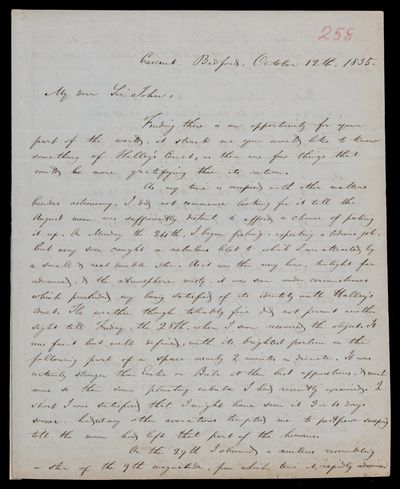 258
Crescent. Bedford. October 12th. 1835.
My dear Sir John,
Finding there is an opportunity for your
part of the world, it struck me you would like to know
something of Halley's Comet, as there are few things that
could be more gratifying than its return.
As my time is occupied with other matters
besides astronomy, I did not commence looking for it till the
August moon was sufficiently distant to afford a chance of picking
it up. On Monday the 24th, I began fishing, expecting a tedious job,
but very soon caught a nebulous blot to which I was attracted by
a small & neat double star. As it was then very low, twilight far
advanced, & the atmosphere misty, it was seen under circumstances
which precluded my being satisfied of its identity with Halley's
Comet. The weather though tolerably fine did not permit another
sight till Friday, the 28th, when I soon recovered the object. It
was faint but well defined, with its brightest portion in the
following part of a space nearly 2 minutes in diameter. It was
certainly stronger than Encke or Biela at their last apparitions, & much
more so than some planetary nebulae I had recently examined. In
short I was satisfied that I might have seen it 3 or 4 days
sooner. had not my other avocations tempted me to postpone sweeping
till the moon had left that part of the heavens.
On the 29th I observed a nucleus resembling
a star of the 9th magnitude, from which time it rapidly advanced